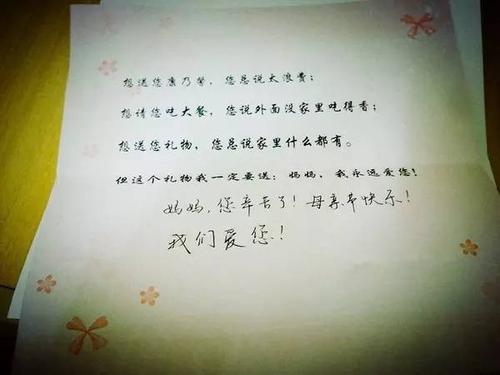 想送您康乃馨，您总说太浪费；
想请您吃大餐，您说外面没家里吃得香；
想送您礼物，您总说家里什么都有。
但这个礼物我一定要送：妈妈，我永远爱您！
妈妈，您辛苦了！母亲节快乐！
我们爱您！